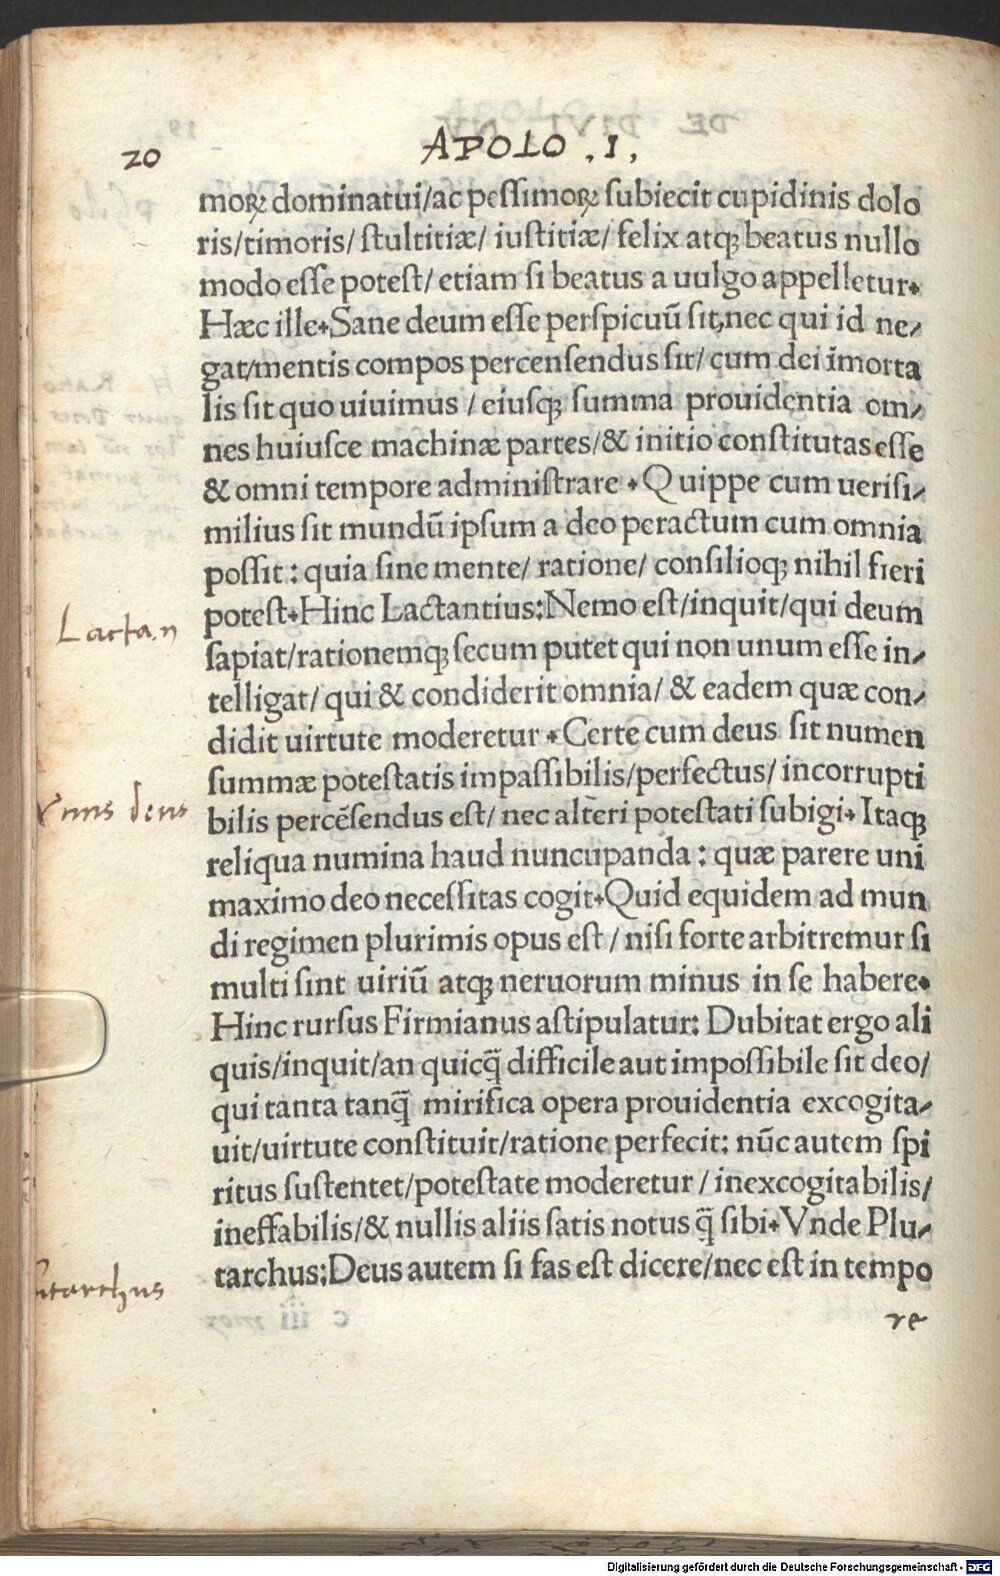 20
APOLO . I .
moꝝ dominatui/ac pessimoꝝ subiecit cupidinis dolo
ris/timoris/ stultitiæ/ iustitiæ/ felix atqꝫ beatus nullo
modo esse potest/ etiam si beatus a uulgo appelletur.
Hæc ille.Sane deum esse perspicuū sit,nec qui id ne-
gat/mentis compos percensendus sit/ cum dei īmorta
lis sit quo uiuimus / eiusqꝫ summa prouidentia om-
nes huiusce machinæ partes/& initio constitutas esse
& omni tempore administrare . Quippe cum uerisi-
milius sit mundū ipsum a deo peractum cum omnia
possit: quia sine mente/ ratione/ consilioqꝫ nihil fieri
potest.Hinc Lactantius:Nemo est/inquit/qui deum
sapiat/rationemqꝫ secum putet qui non unum esse in-
telligat/ qui & condiderit omnia/ & eadem quæ con-
didit uirtute moderetur . Certe cum deus sit numen
summæ potestatis impassibilis/perfectus/ incorrupti
bilis percēsendus est/ nec alteri potestati subigi. Itaqꝫ
reliqua numina haud nuncupanda : quæ parere uni
maximo deo necessitas cogit.Quid equidem ad mun
di regimen plurimis opus est / nisi forte arbitremur si
multi sint uiriū atqꝫ neruorum minus in se habere.
Hinc rursus Firmianus astipulatur: Dubitat ergo ali
quis/inquit/an quicq̄ difficile aut impossibile sit deo/
qui tanta tanq̄ mirifica opera prouidentia excogita-
uit/uirtute constituit/ratione perfecit: nūc autem spi
ritus sustentet/potestate moderetur / inexcogitabilis/
ineffabilis/& nullis aliis satis notus q̄ sibi.Vnde Plu-
tarchus:Deus autem si fas est dicere/nec est in tempo
re
Lactan
Vnus deus
utarchus
Digitalisierung gefördert durch die Deutsche Forschungsgemeinschaft - DFG